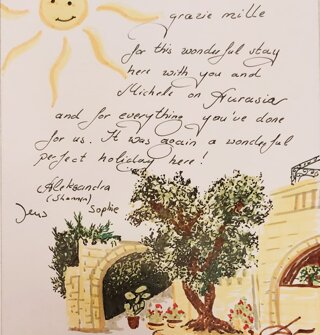 grazie mille
for this wonderful stay
here with you and
Michele on Aurasia
and for everything you've done
for us. It was again a wonderful
perfect holiday here!
Aleksandra
Sophie
Jens